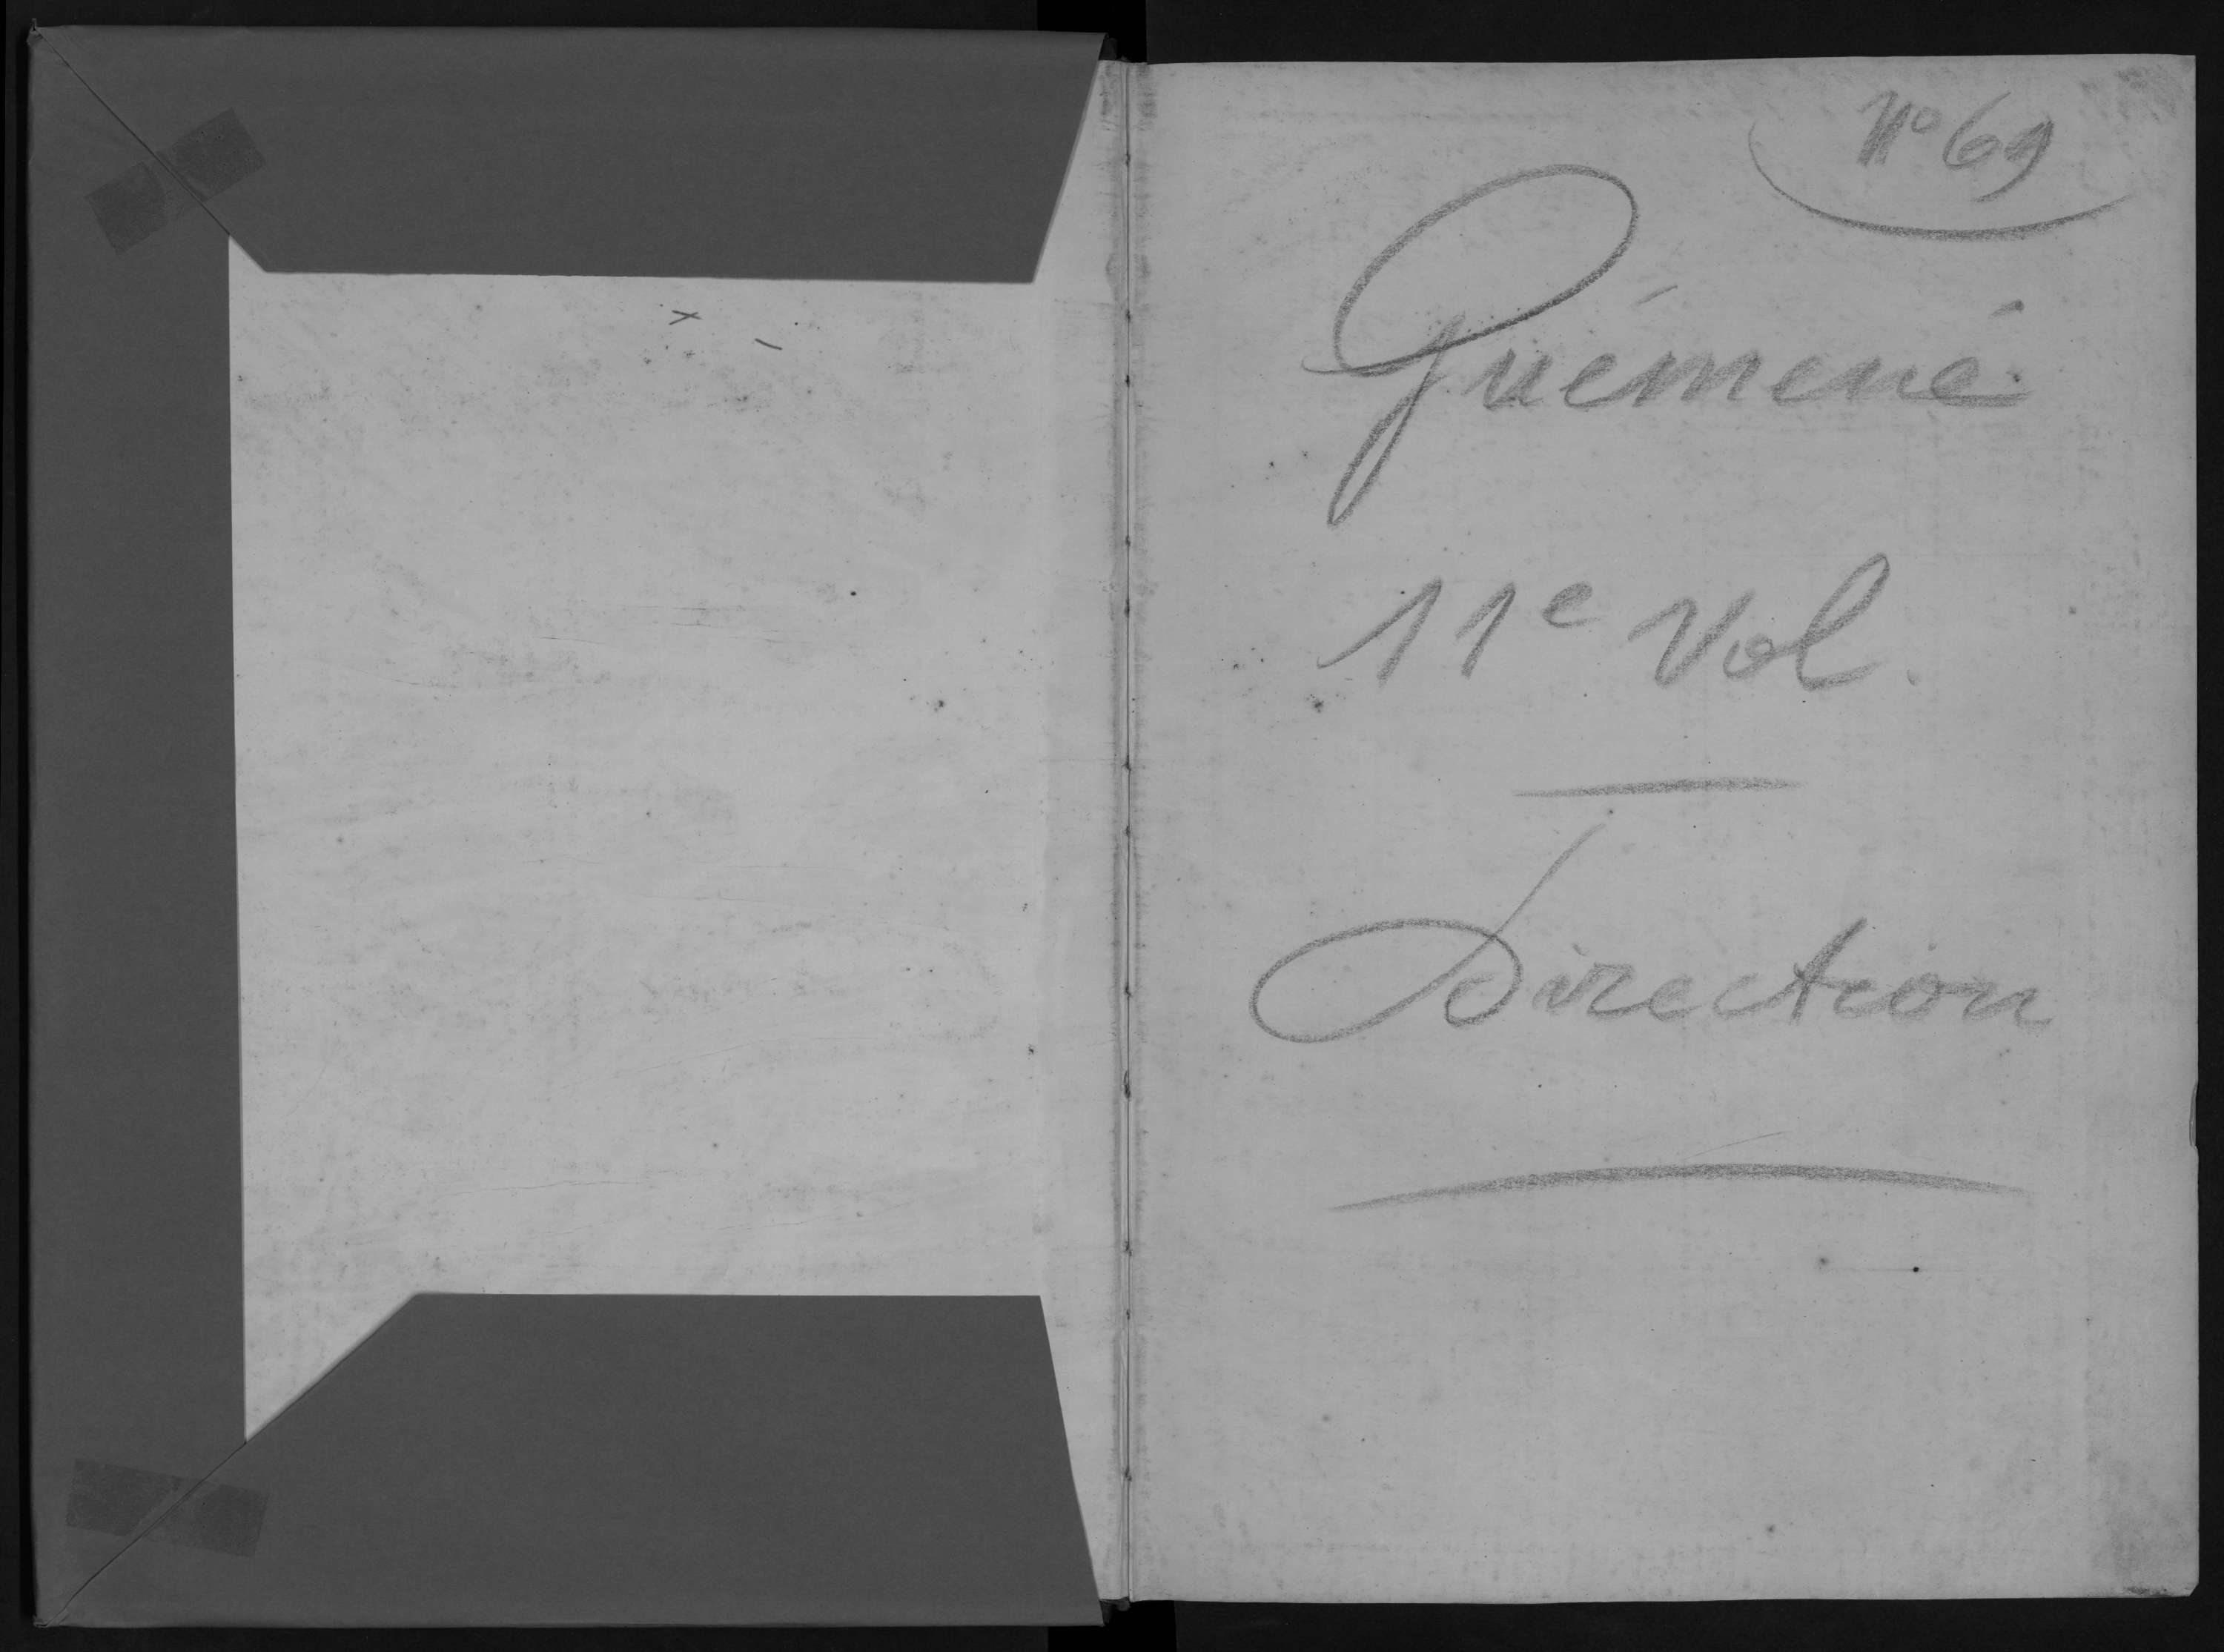 N° 69
Guémené
11e Vol.
Direction